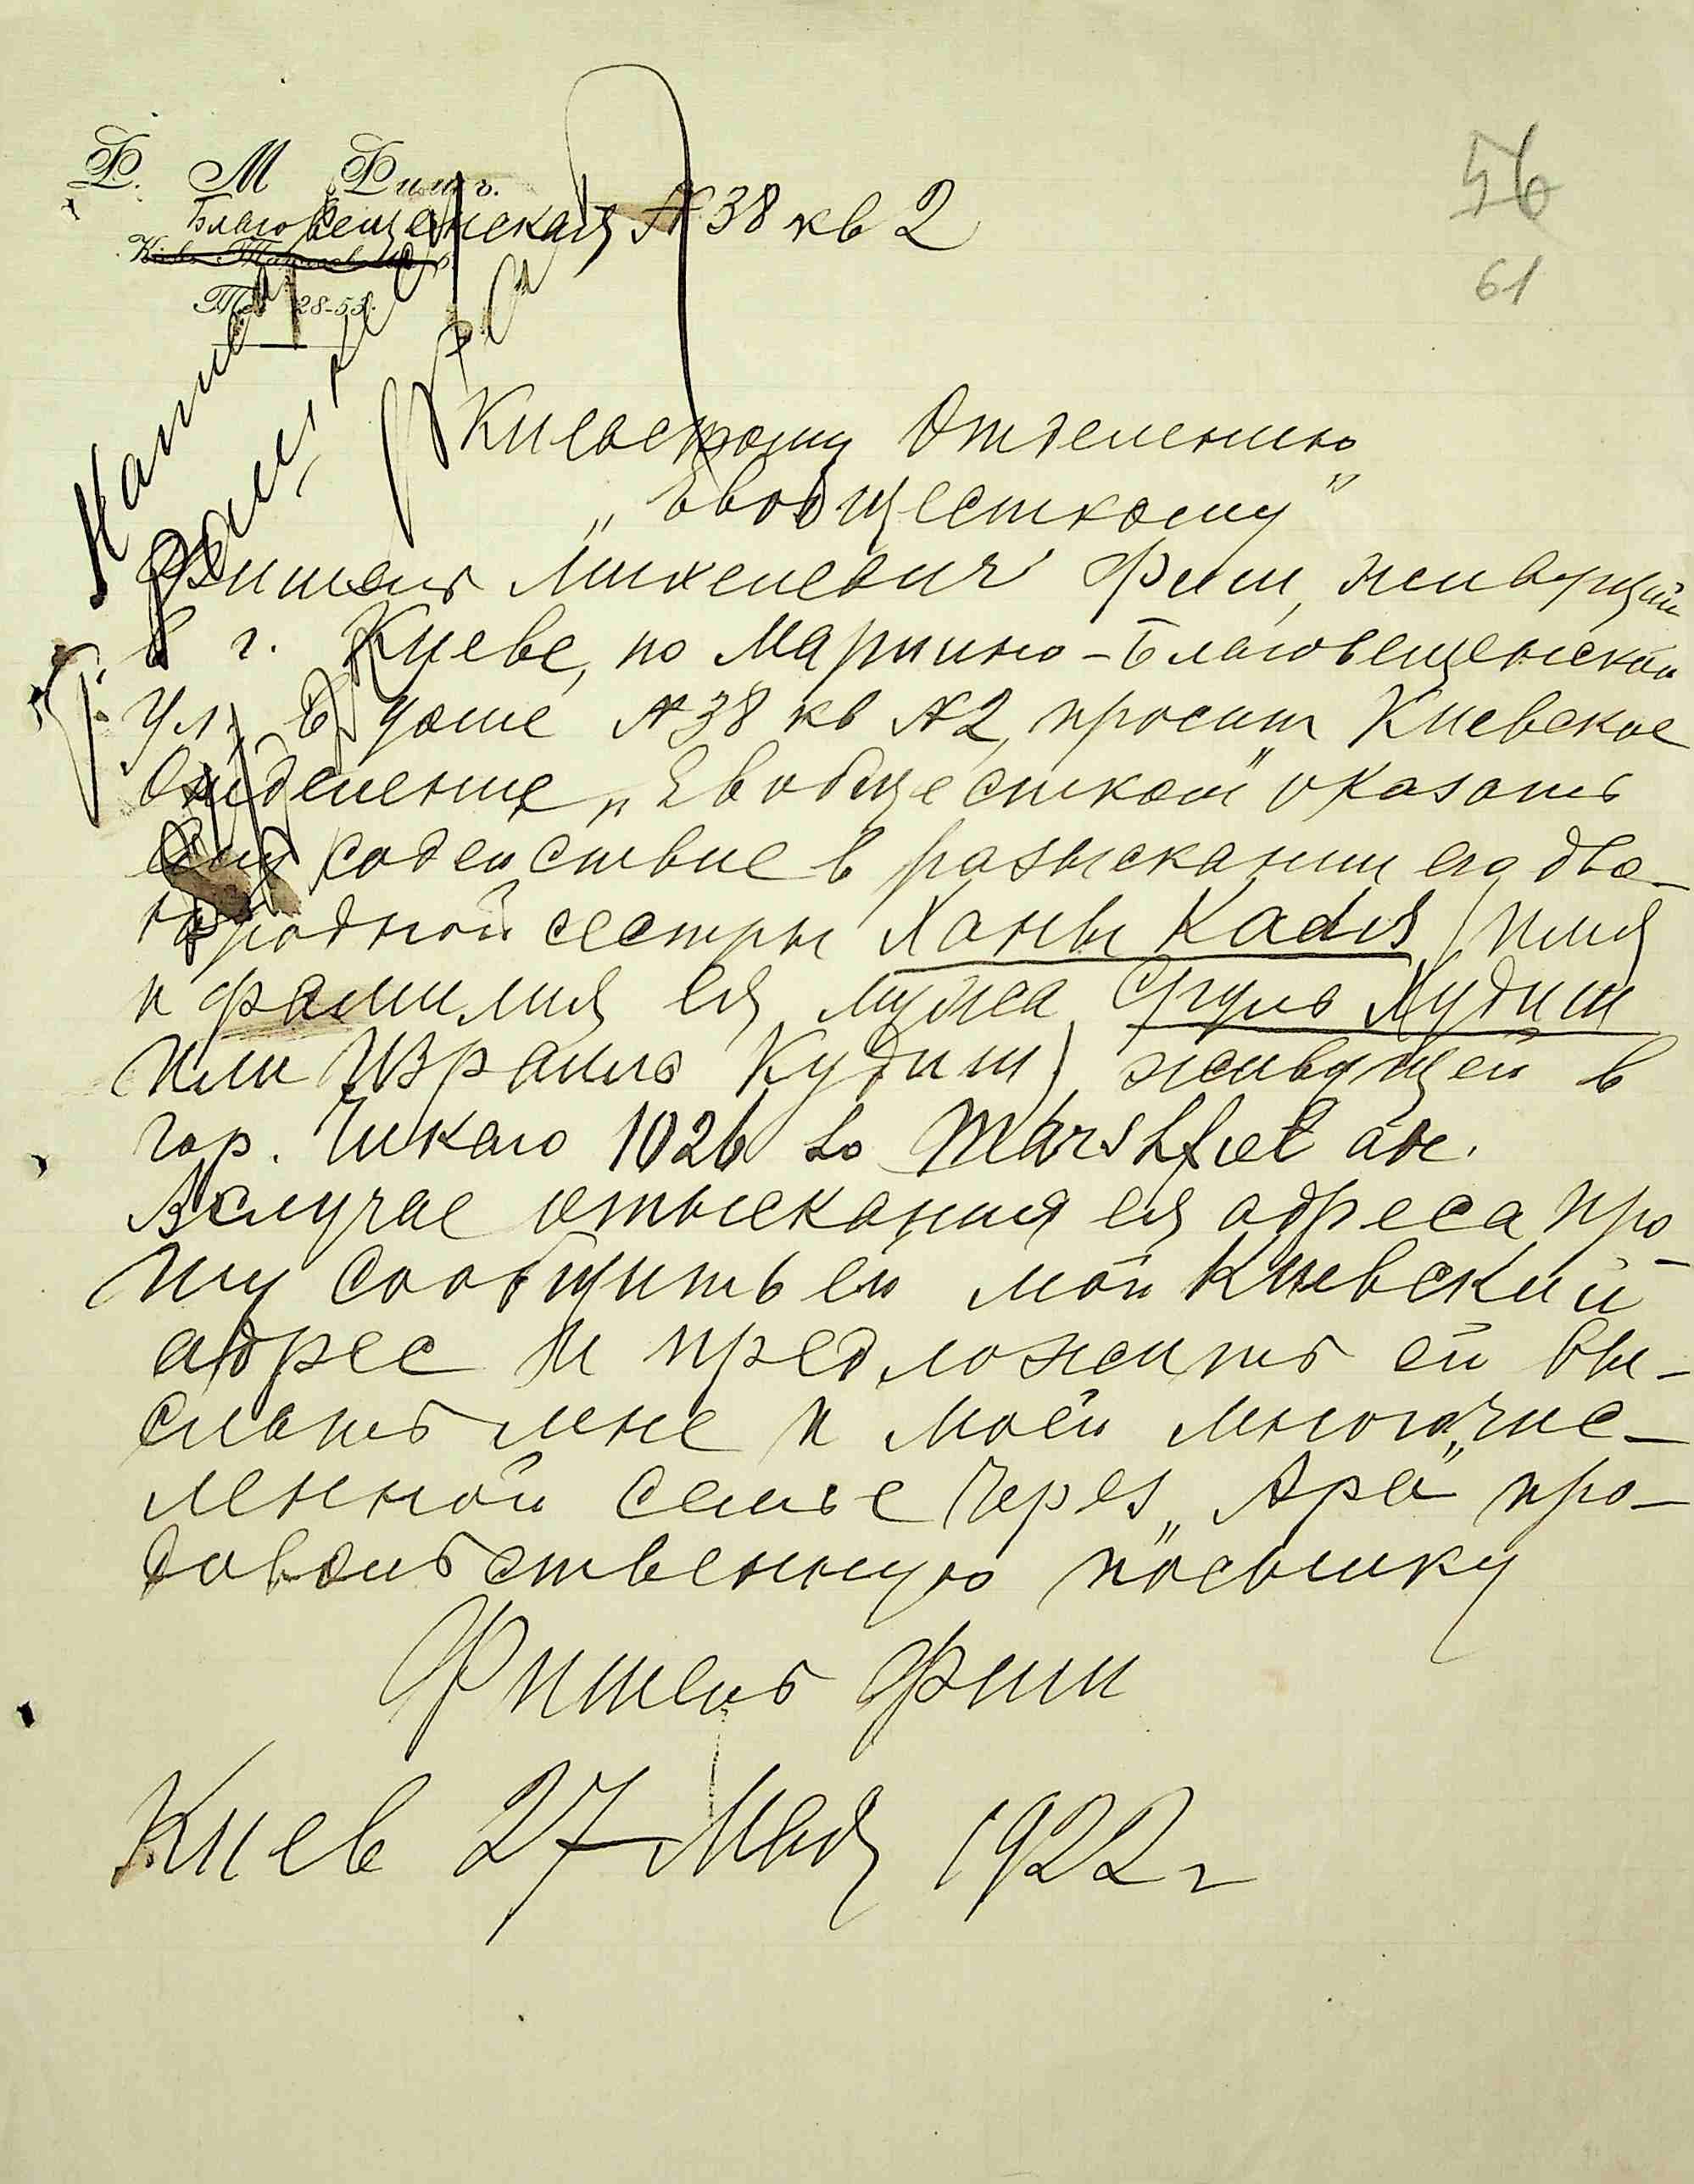 Ф. М Фишъ.
Благовещенская № 38 кв 2
Тел. 28-53.
56
61
Киевскому Отделению
„Евобщесткому"
Фишель Михелевич Фиш, живущий
в г. Киеве, по Мариино-Благовещенской
ул., в доме № 38 кв № 2, просит Киевское
Отделение „Евобщестком" оказать
ему содействие в разыскании его дво-
юродной сестры Ханы Kadish (имя
и фамилия ея мужа Сруль Худиш
или Израиль Кудиш) живущей в
гор. Чикаго 1026 So Marshfiel ave.
В случае отыскания ея адреса про-
шу сообщить ей мой Киевский
адрес и предложить ей вы-
слать мне и моей многочис-
ленной семье через „Ара" про-
довольственную посылку
Фишель Фиш
Киев 27 Мая 1922 г